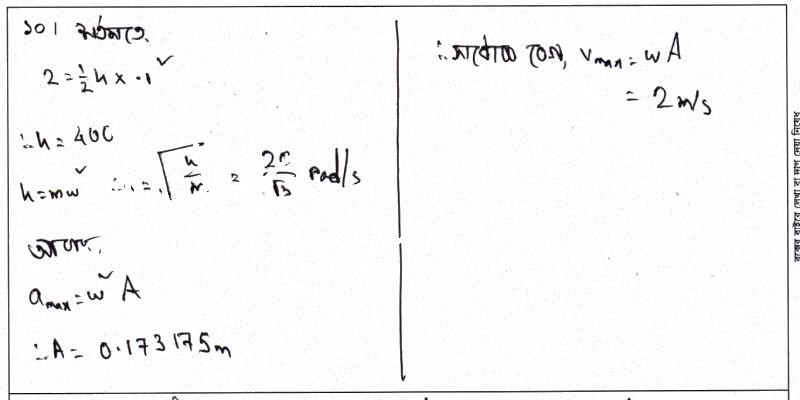 ১০। শর্তমতে,
2 = ½ k × ·1²
∴ k = 400
k = mω² ∴ ω = √(k/m) = 20/√3 rad/s
আবার,
a_max = ω² A
∴ A = 0.173175m
∴ সর্বোচ্চ বেগ, v_max = ωA
= 2 m/s
বক্সের বাইরে লেখা বা দাগ দেয়া নিষেধ